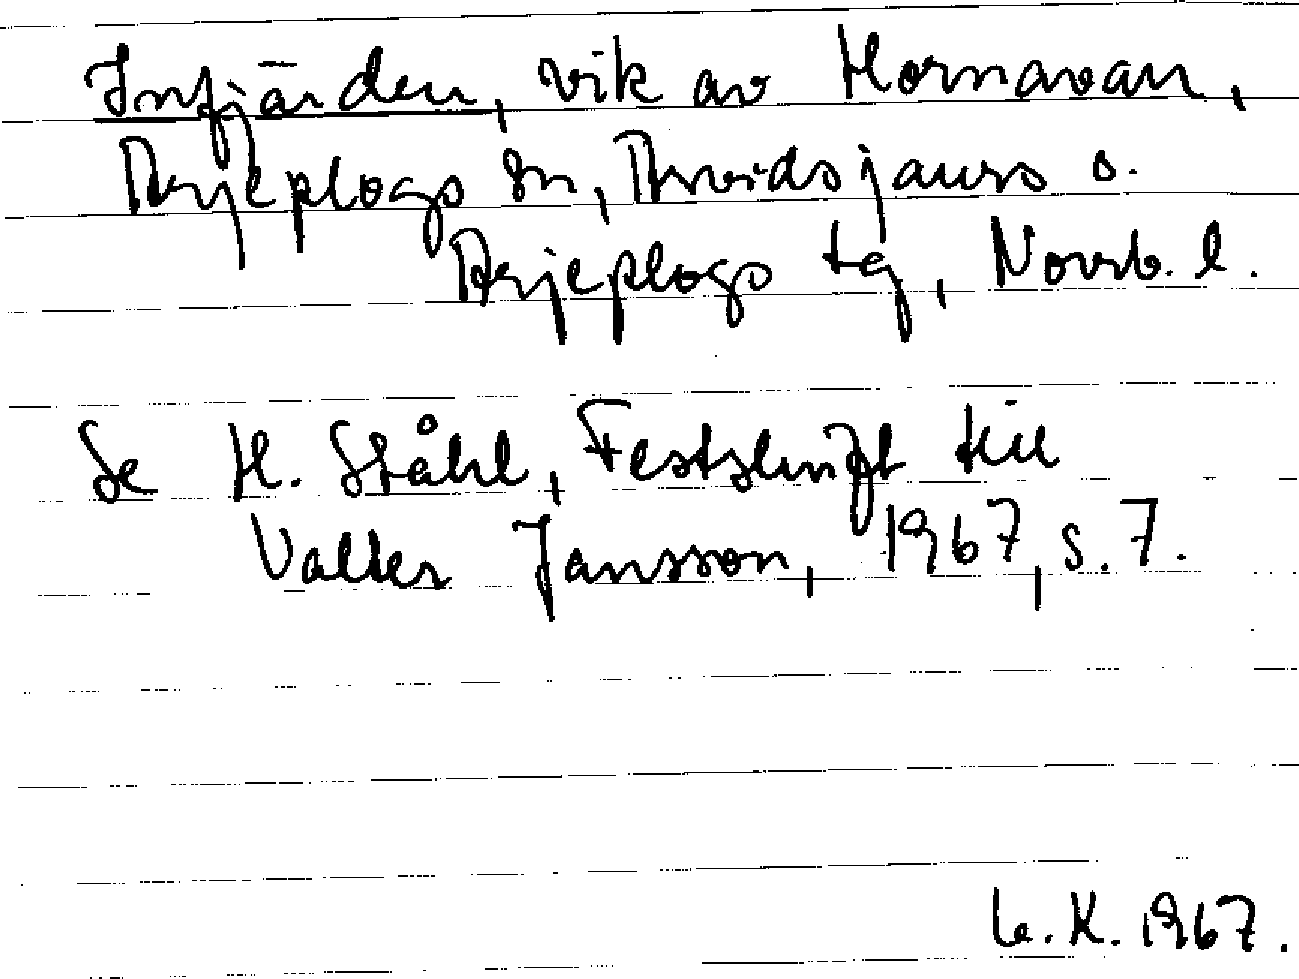 Infjärden, vik av Hornavan,
Arjeplogs sn, Arvidsjaurs o.
Arjeplogs tg, Norrb. l.
Se H. Ståhl, Festskrift till
Valter Jansson, 1967, s. 7.
K. 1967.